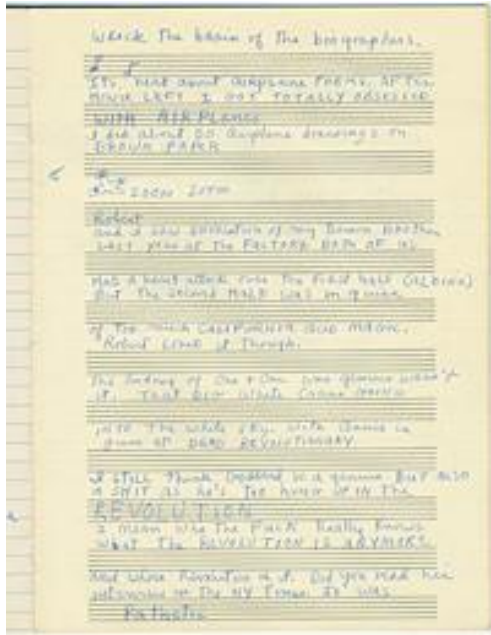 WRECK The brain of The biographers.
It's near about airplane POEMS. AFTER
LEFT I GOT TOTALLY OBSESSED
WITH AIRPLANES
I did about 50 Airplane drawings on
BROWN PAPER
ZOOM ZOOM
Robert
and I saw of my Brown
LAST YEAR at The FACTORY. BOTH OF US
Had a heart attack over The First half
But The second HALF was
of Too much CALIFORNIA
Robert it Though.
The Ending of One + One was genius wasn't
it. That BIG White Crane
INTO The white sky. with in
DEAD REVOLUTIONARY
I STILL Think is a genius BUT ALSO
A SHIT as he's Too hung UP IN The
REVOLUTION
I mean who The FUCK Really Knows
WHAT The REVOLUTION IS ANYMORE
And whose Revolution is it. Did you read her
interview in The NY Times. It was
Pathetic